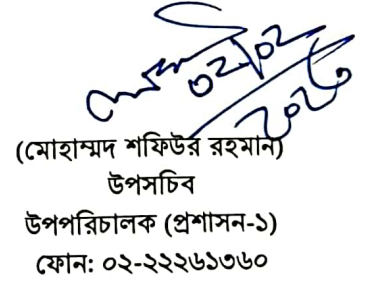 ০২/০২
(মোহাম্মদ শফিউর রহমান)
উপসচিব
উপপরিচালক (প্রশাসন-১)
ফোন: ০২-২২২৬১৩৬০